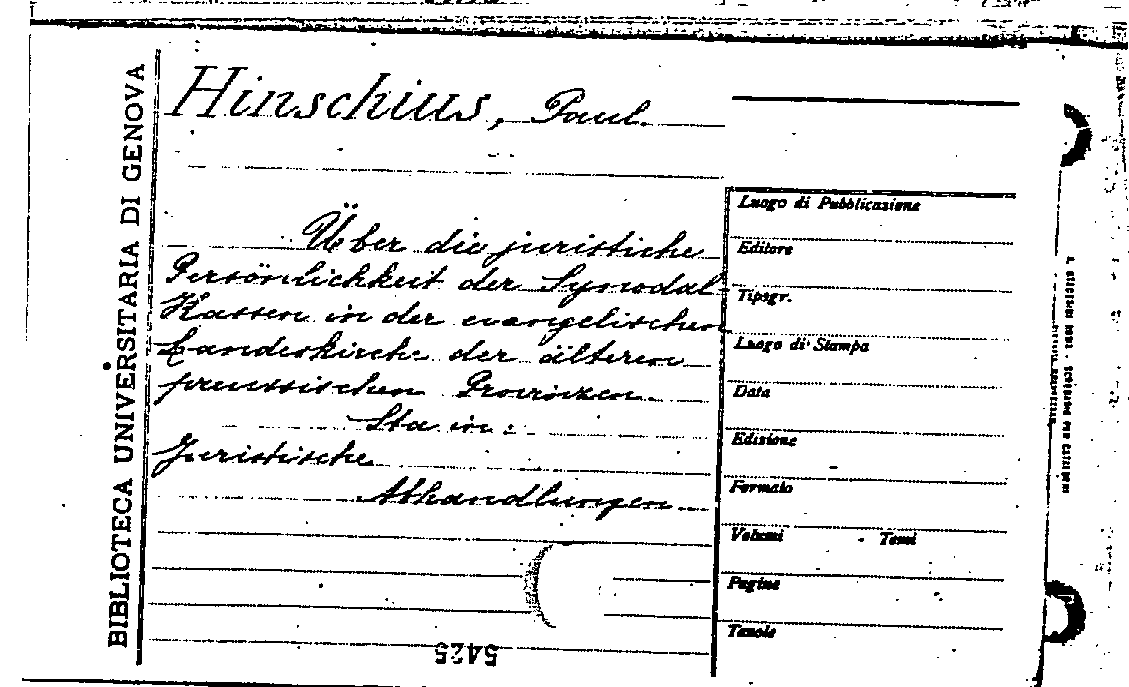 BIBLIOTECA UNIVERSITARIA DI GENOVA
Hinschius, Paul.
Über die juristiche
Persönlichkeit der Synodal
Kassen in der evangelischen
Landeskirche der älteren
preussischen Provinzen
Sta in:
Juristische
Abhandlungen
5425
Luogo di Pubblicazione
Editore
Tipogr.
Luogo di Stampa
Data
Edizione
Formato
Volumi Tomi
Pagine
Tavole